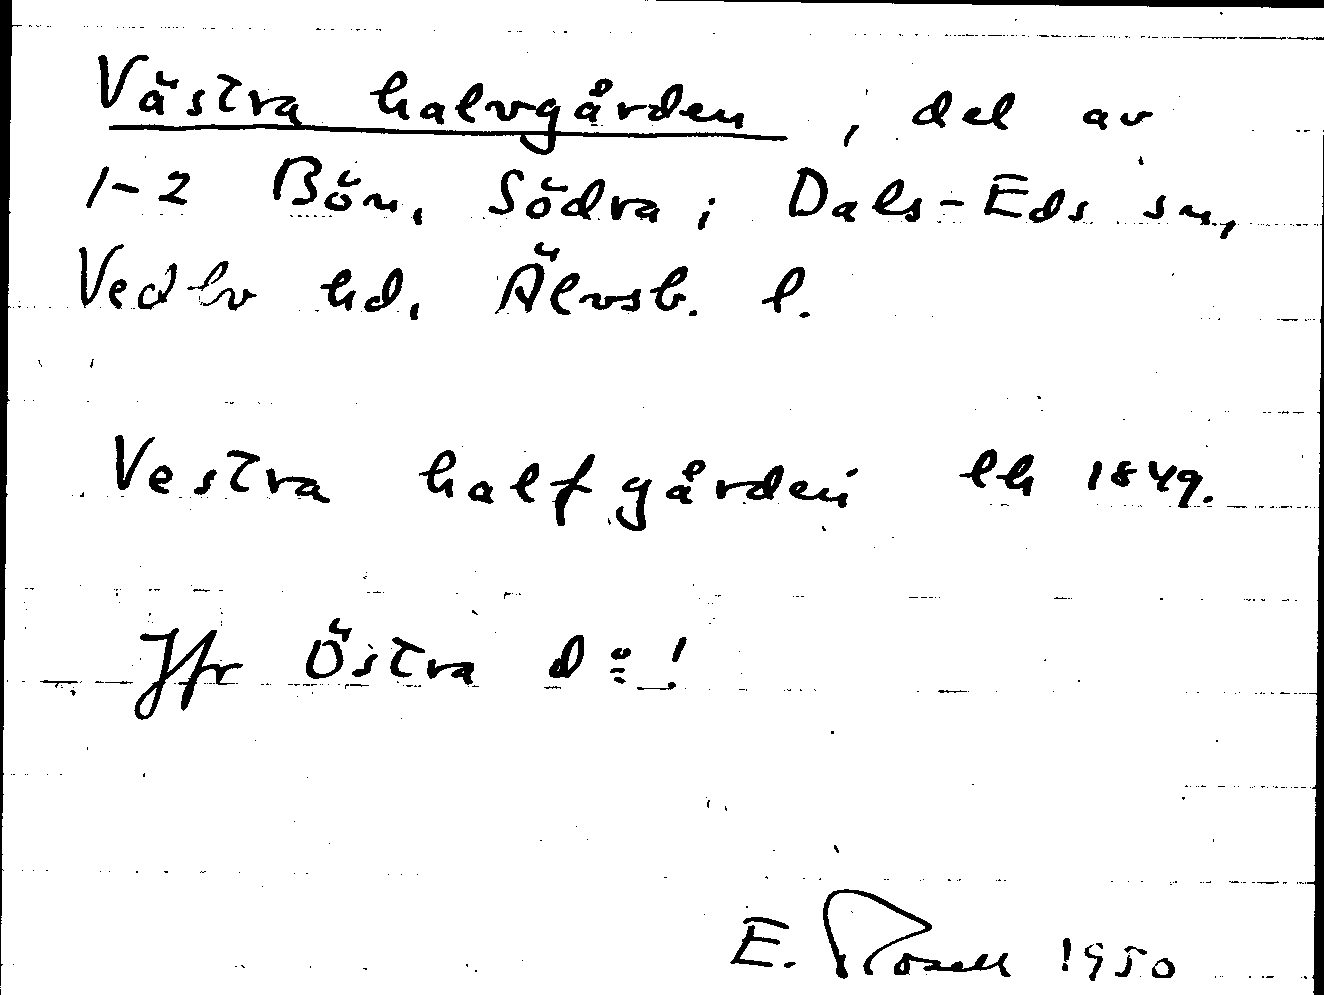 Västra halvgården, del av
1-2 Bön, Södra i Dals-Eds sn,
Vedbo hd, Älvsb. l.
Vestra halfgården lh 1849.
Jfr Östra d:o!
E. Rosell 1950